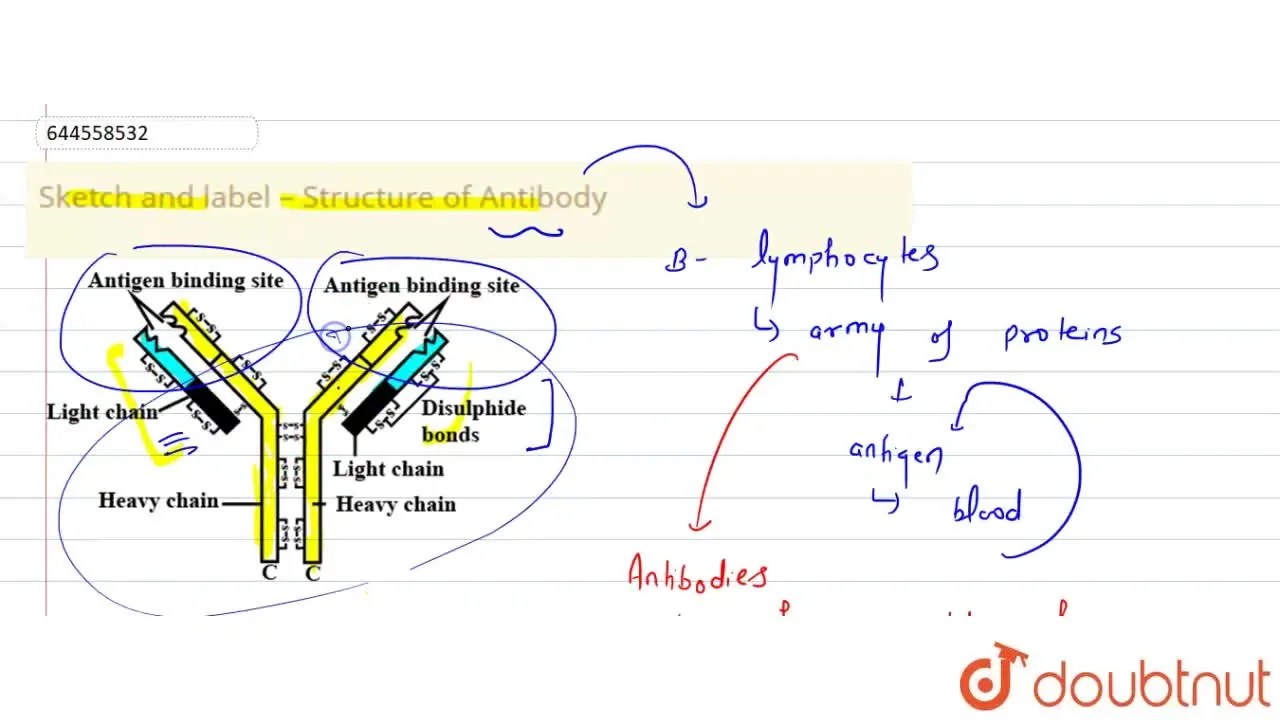 644558532
Sketch and label – Structure of Antibody
B- lymphocytes
↳ army of proteins
antigen
↳ blood
Antibodies
Antigen binding site
Antigen binding site
S-S
S-S
S-S
S-S
S-S
S-S
S-S
S-S
Light chain
Disulphide
bonds
S-S
S-S
Light chain
Heavy chain
Heavy chain
C C
doubtnut